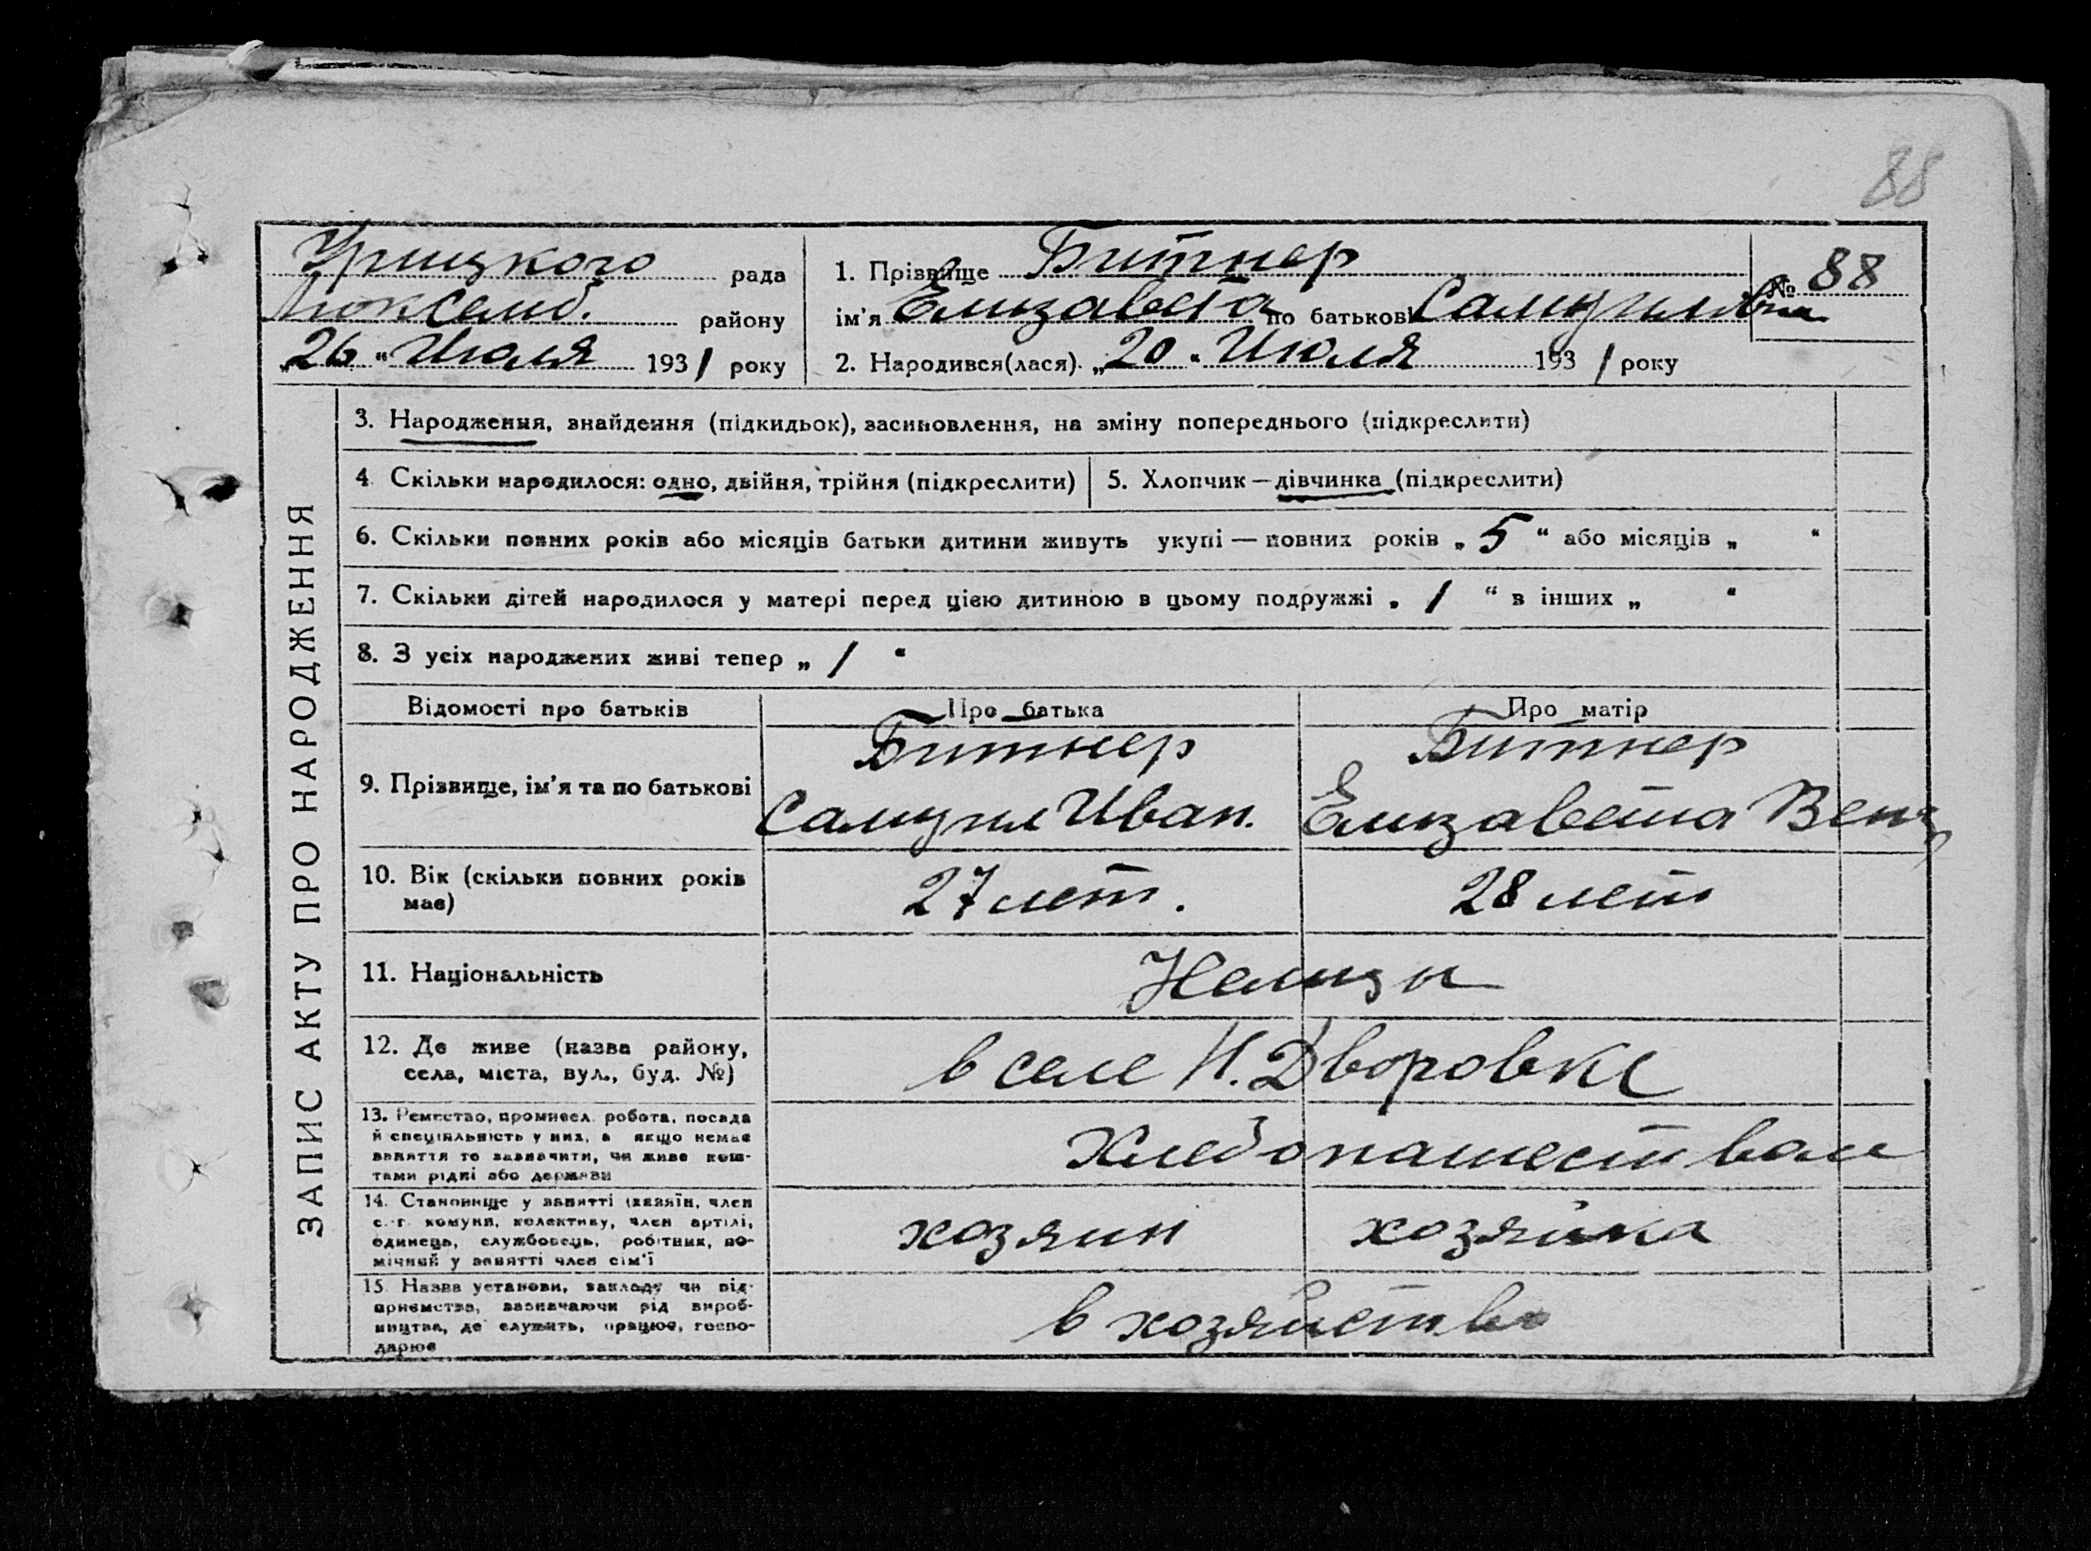 88
Урицкого рада
Люксемб. району
„26“ Июля 1931 року
1. Прізвище Битнер
ім’я Елизавета по батькові Самуиловна
№ 88
2. Народився(лася). „20“ Июля 1931 року
ЗАПИС АКТУ ПРО НАРОДЖЕННЯ
3. Народження, знайдення (підкидьок), засиновлення, на зміну попереднього (підкреслити)
4. Скільки народилося: одно, двійня, трійня (підкреслити)
5. Хлопчик — дівчинка (підкреслити)
6. Скільки повних років або місяців батьки дитини живуть укупі — повних років „ 5 “ або місяців „ “
7. Скільки дітей народилося у матері перед цією дитиною в цьому подружжі „ 1 “ в інших „ “
8. З усіх народжених живі тепер „ 1 “
Відомості про батьків Про батька Про матір
9. Прізвище, ім’я та по батькові
Битнер
Самуил Иван.
Битнер
Елизавета
10. Вік (скільки повних років
має)
27 лет.
28 лет
11. Національність
Немцы
12. Де живе (назва району,
села, міста, вул., буд. №)
в селе Н. Дворовке
13. Ремество, промисел. робота, посада
й спеціяльність у них, а якщо немає
заняття то зазначити, чи живе кош-
тами рідні або держави
Хлебопашеством
14. Становище у занятті (хазяїн, член
с.-г. комуни, колективу, член артілі,
одинець, службовець, робітник, по-
мічний у занятті член сім’ї
хозяин
хозяйка
15. Назва установи, закладу чи під-
приємства, зазначаючи рід вироб-
ництва, де служить, працює, госпо-
дарює
в хозяйстве